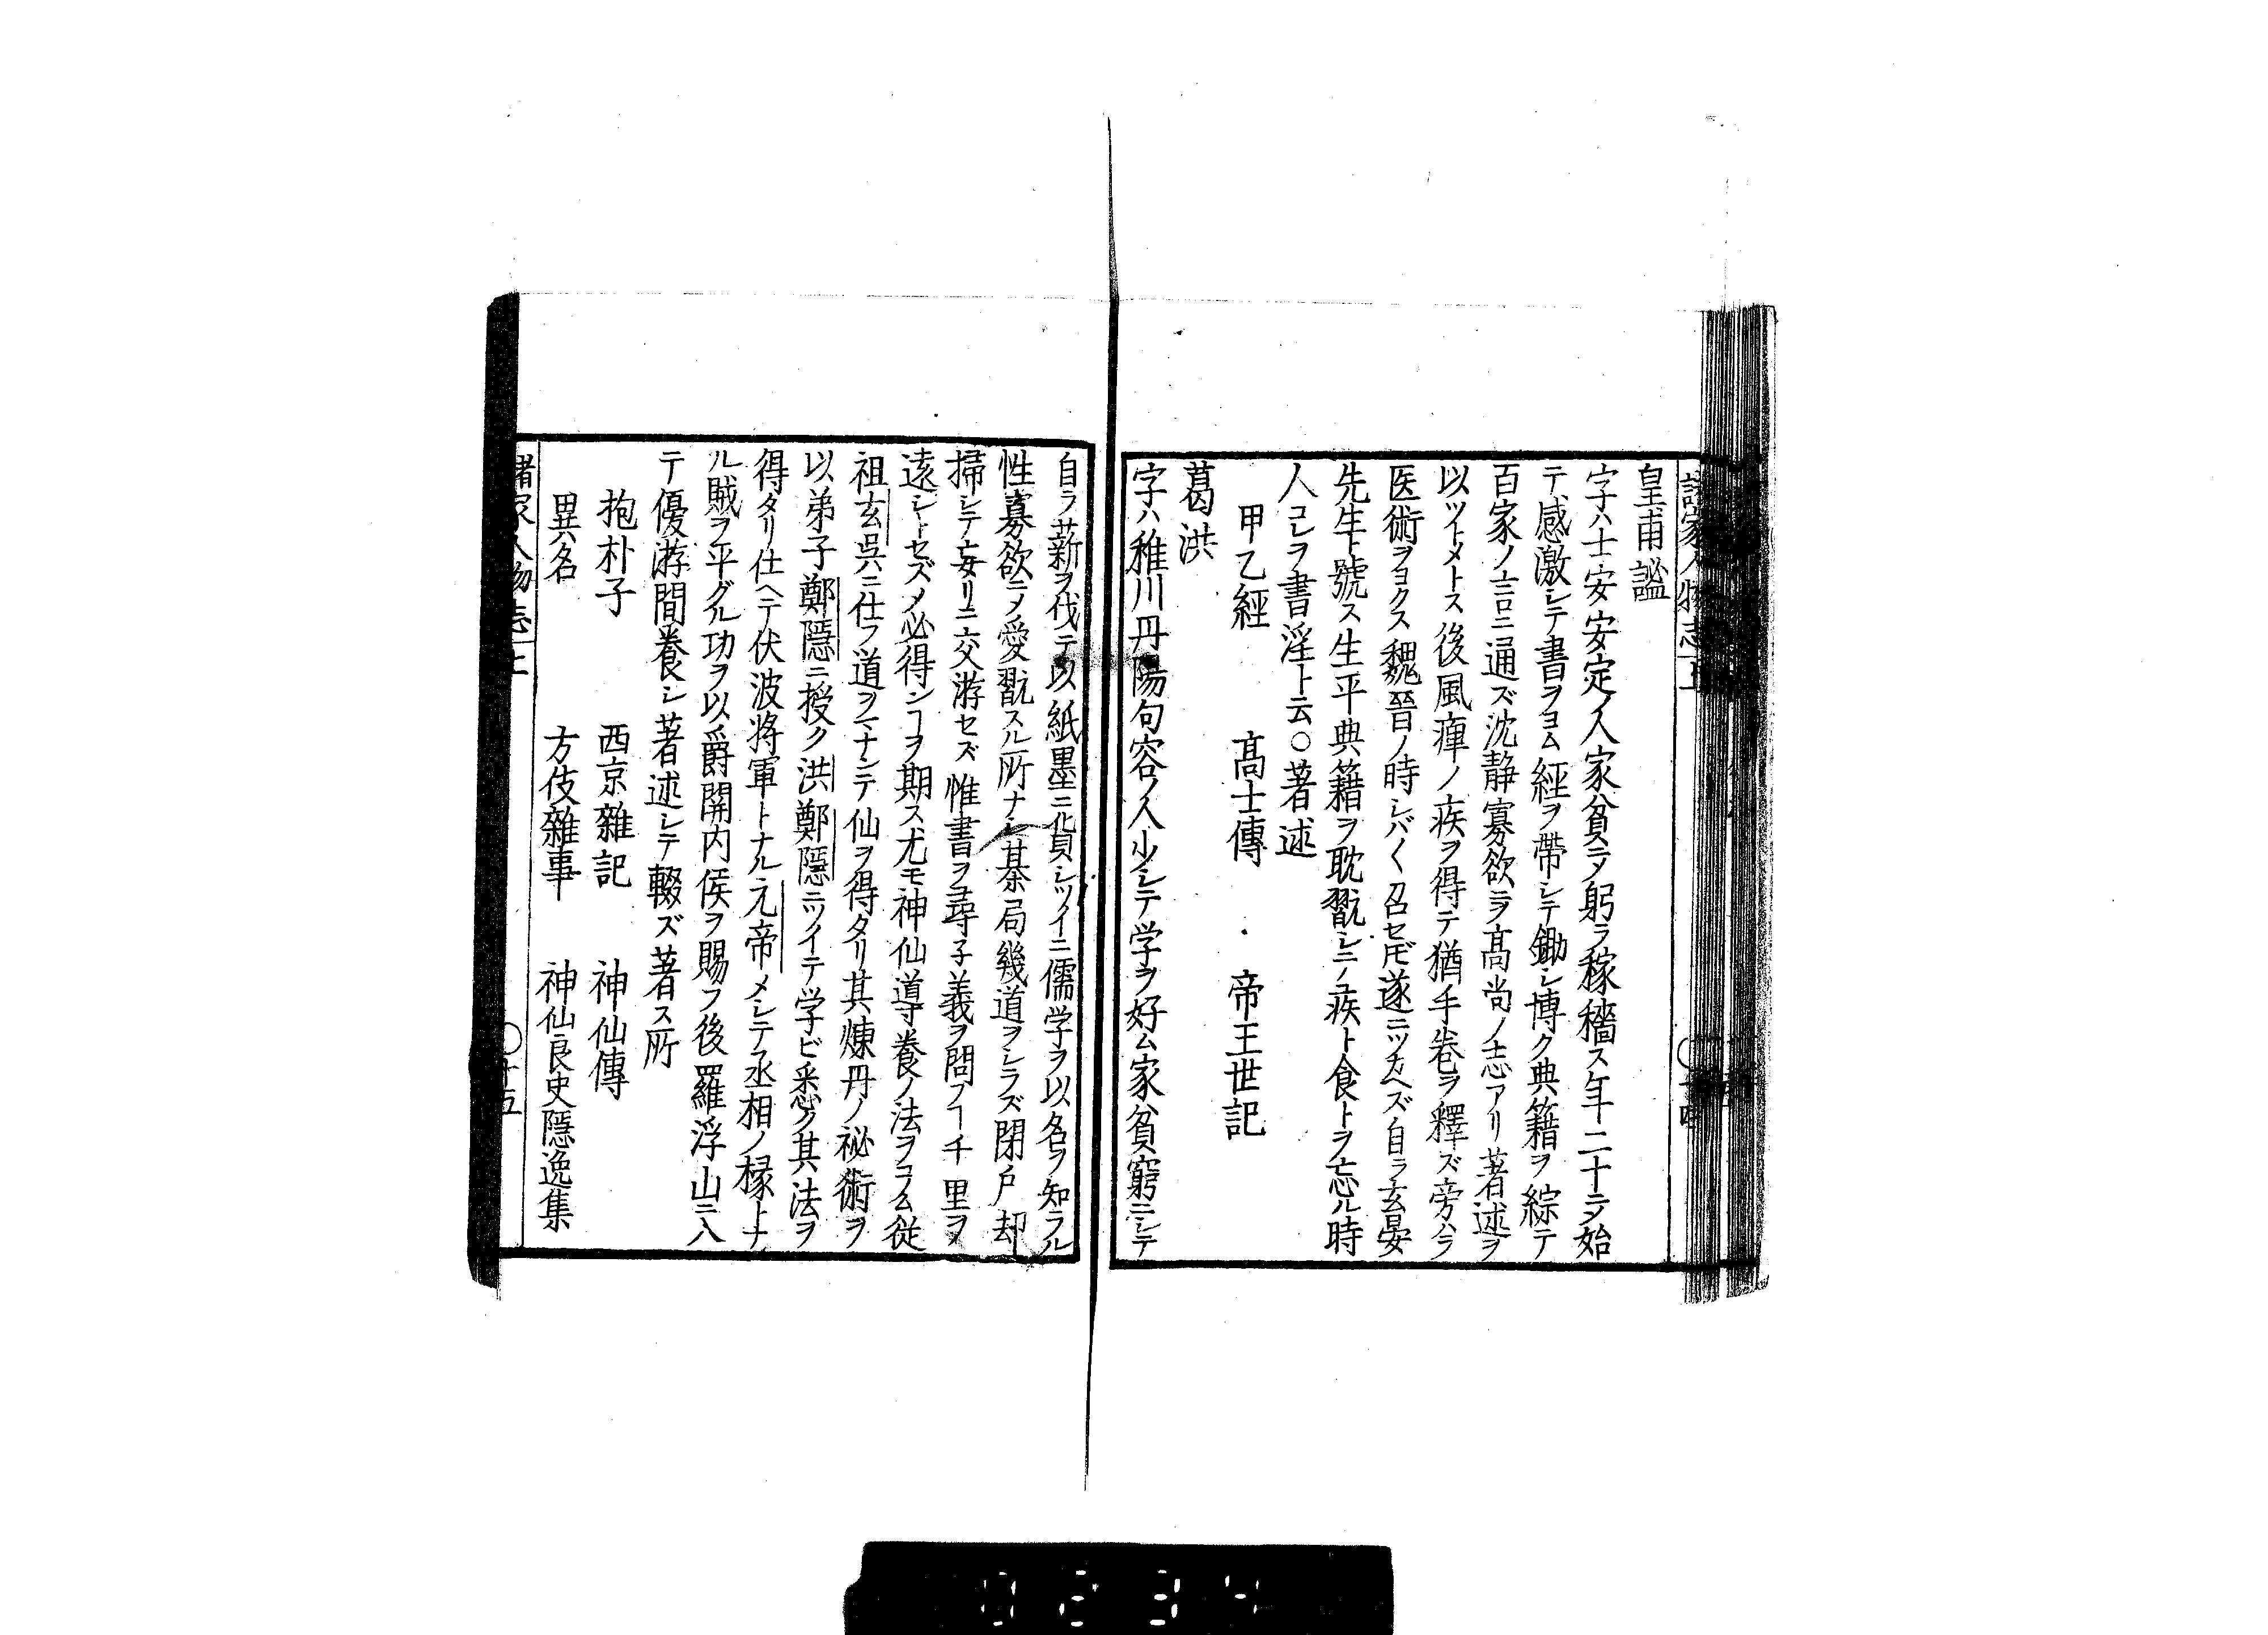 皇甫謐
字ハ士安安定ノ人家貧ニメ躬ラ稼穡ス年二十ニメ始
テ感激シテ書ヲヨム經ヲ帶シテ鋤シ博ク典籍ヲ綜テ
百家ノ言ニ通ズ沈静寡欲ニメ高尚ノ志アリ著述ヲ
以ツトメトス後風痺ノ疾ヲ得テ猶手巻ヲ釋ズ旁ハラ
医術ヲヨクス魏晉ノ時シバ〱召セ𪜈遂ニツカヘズ自ラ玄晏
先生ト號ス生平典籍ヲ耽翫シニメ疾ト食トヲ忘ル時
人コレヲ書淫ト云○著述
甲乙經　高士傳　帝王世記
葛洪
字ハ稚川丹陽句容ノ人少シテ学ヲ好ム家貧窮ニシテ
自ラ薪ヲ伐テ以紙墨ニ貿シツイニ儒学ヲ以名ヲ知ラル
性寡欲ニメ愛翫スル所ナシ棊局幾道ヲシラズ閉戸却
掃シテ妄リニ交游セズ惟書ヲ尋子義ヲ問フヿ千里ヲ
遠シトセズメ必得ンヿヲ期ス尤モ神仙導養ノ法ヲコノム従
祖玄呉ニ仕フ道ヲマナンテ仙ヲ得タリ其煉丹ノ祕術ヲ
以弟子鄭隱ニ授ク洪鄭隱ニツイテ学ビ悉ク其法ヲ
得タリ仕ヘテ伏波将軍トナル元帝メシテ丞相ノ椽トナ
ル賊ヲ平グル功ヲ以爵關内侯ヲ賜フ後羅浮山ニ入
テ優游間養シ著述シテ輟ズ著ス所
抱朴子　西京雜記　神仙傳
異名　方伎雜事　神仙良史隱逸集
諸家人物志上　○十五
0234